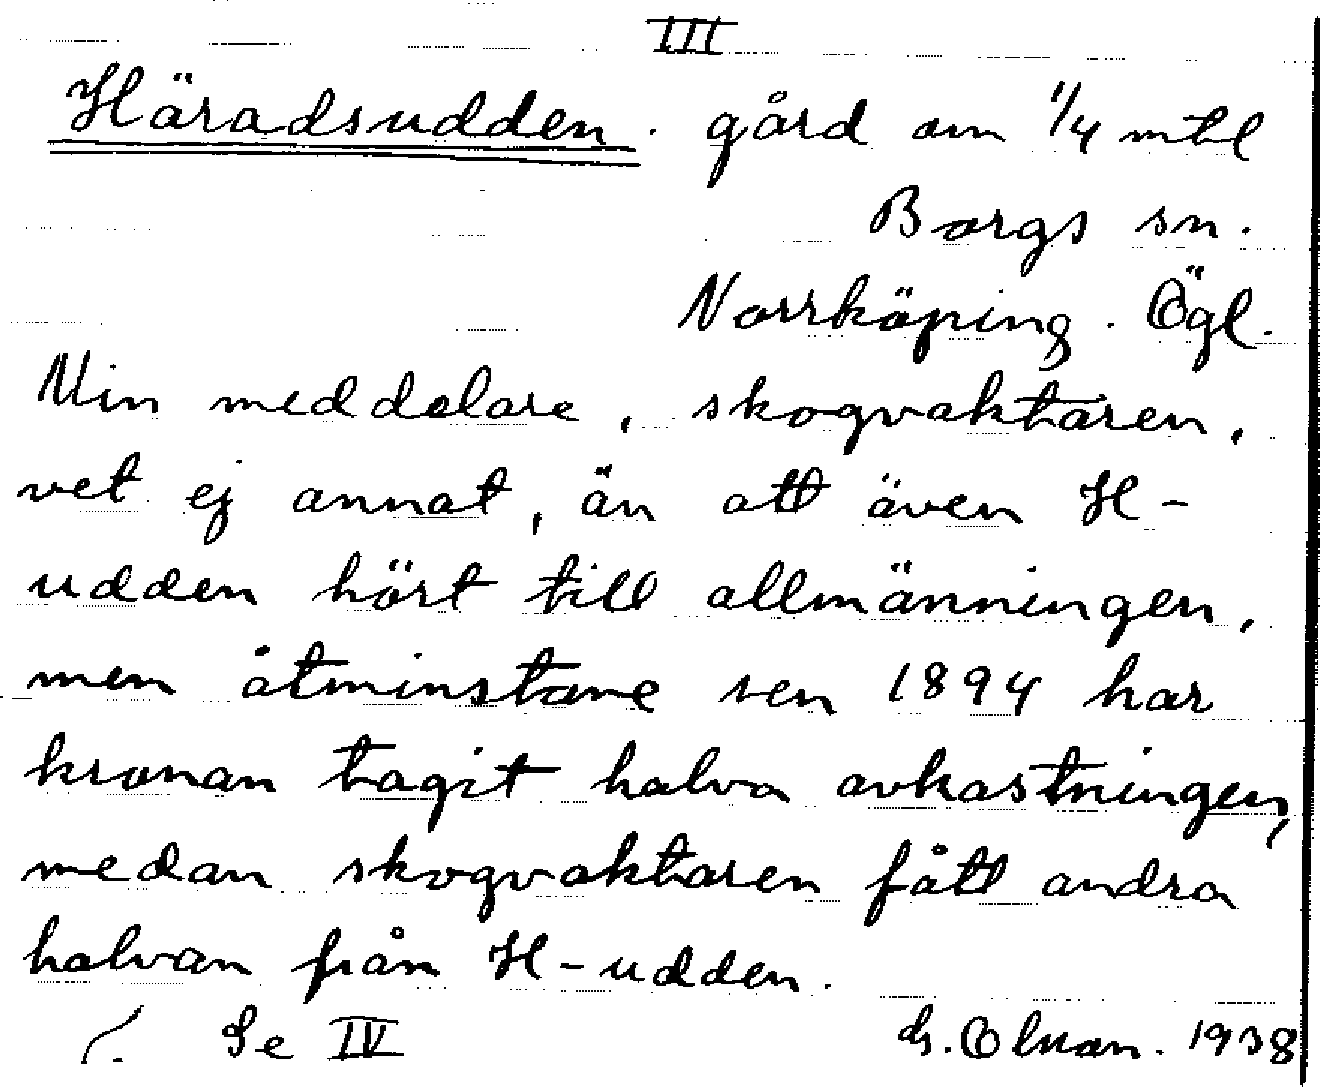 III
Häradsudden. gård om 1/4 mtl
Borgs sn.
Norrköping. Ögl.
Min meddelare, skogvaktaren,
vet ej annat, än att även H-
udden hört till allmänningen,
men åtminstone sen 1894 har
kronan tagit halva avkastningen,
medan skogvaktaren fått andra
halvan från H-udden.
/. Se IV G. Olman. 1938